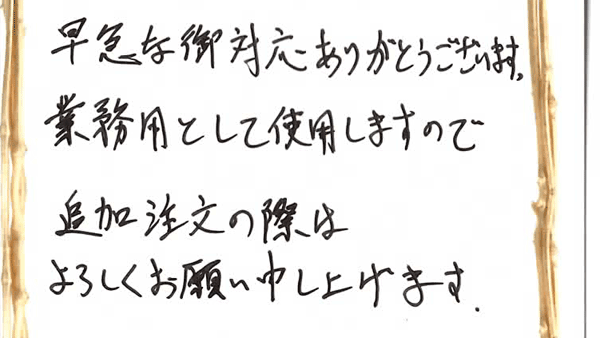 早急な御対応ありがとうございます。
業務用として使用しますので
追加注文の際は
よろしくお願い申し上げます.